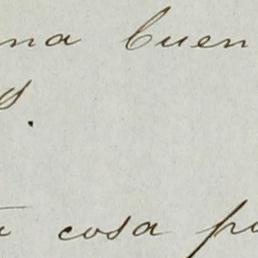 na buen
s.
cosa p